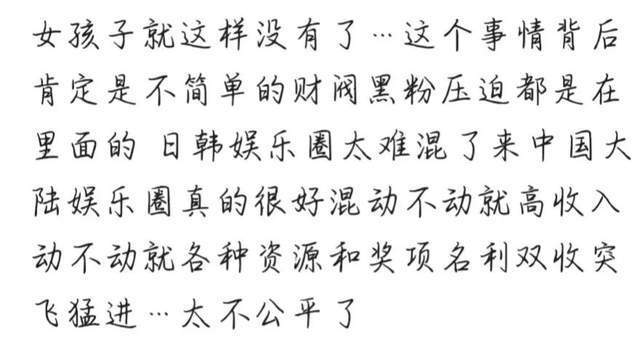 女孩子就这样没有了…这个事情背后
肯定是不简单的财阀黑粉压迫都是在
里面的 日韩娱乐圈太难混了来中国大
陆娱乐圈真的很好混动不动就高收入
动不动就各种资源和奖项名利双收突
飞猛进…太不公平了